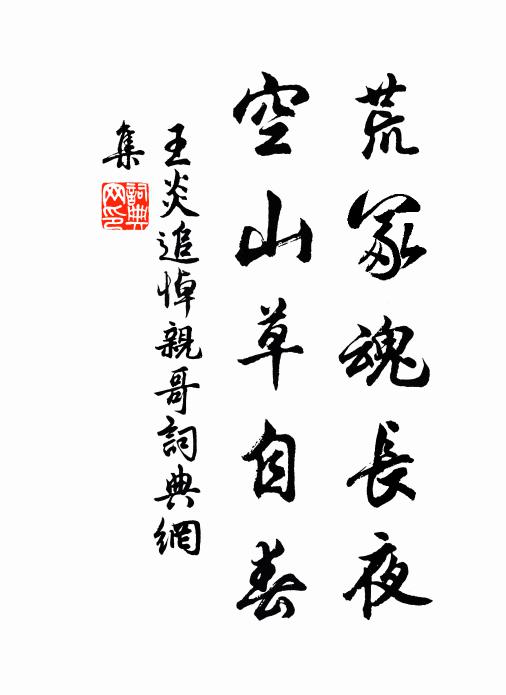 荒冢魂長夜
空山草自春
王炎追悼親哥詞典網
集
詞典
网印